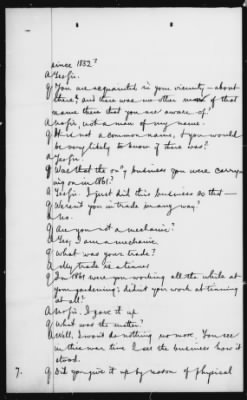 since 1882?
A Yes sir.
Q You are acquainted in your vicinity - about
there? and there was no other man of that
name there that you are aware of.
A No sir, not a man of my name.
Q It is not a common name, & you would
be very likely to know if there was?
A Yes sir.
Q Was that the only business you were carry-
ing on in 1861?
A Yes sir. I just did this business so that —
Q Weren't you in trade in any way?
A No.
Q Are you not a mechanic?
A Yes, I am a mechanic.
Q What was your trade?
A My trade is a tinner
Q In 1861 were you working all the while at
your gardening; didn't you work at tinning
at all?
A No sir, I gave it up
Q What was the matter?
A Well, I wont do nothing no more. You see
in this war time I see the business how it
stood.
7. Q Did you give it up by reason of physical